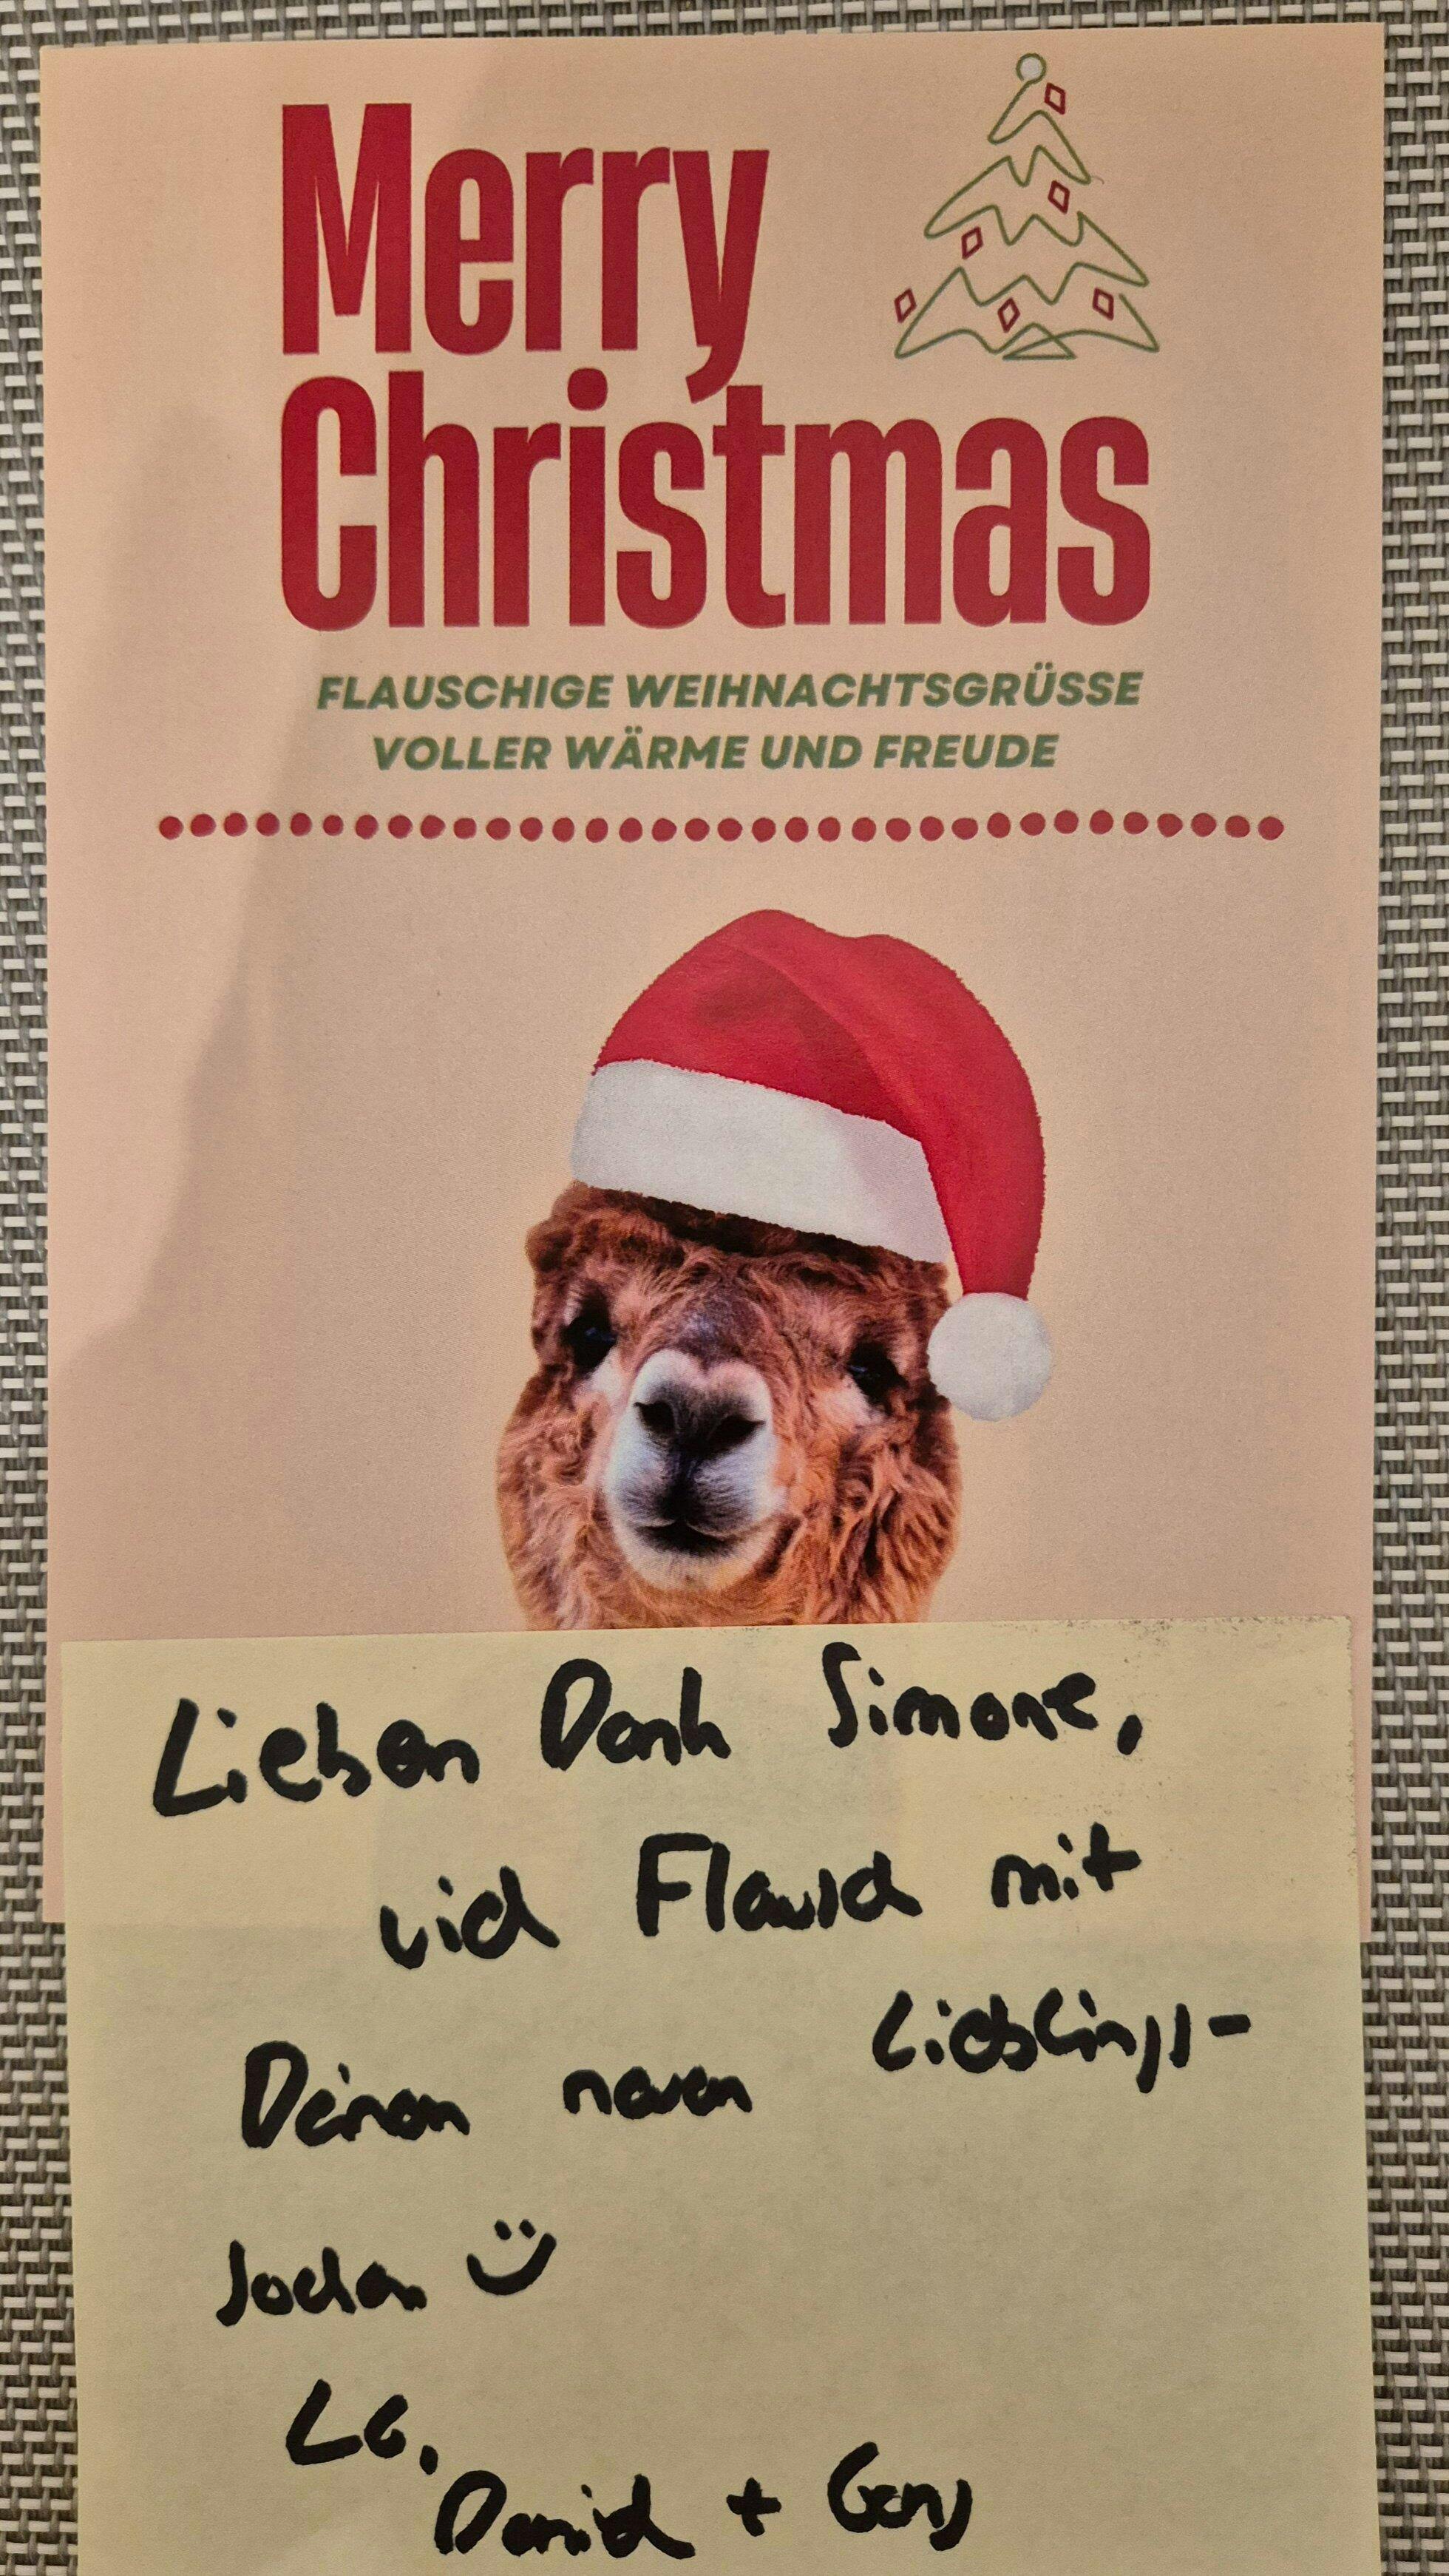 Merry
Christmas
FLAUSCHIGE WEIHNACHTSGRÜSSE
VOLLER WÄRME UND FREUDE
Lieben Dank Simone,
viel Flausch mit
Deinen neuen Lieblings-
socken
LG,
Daniel + Gang